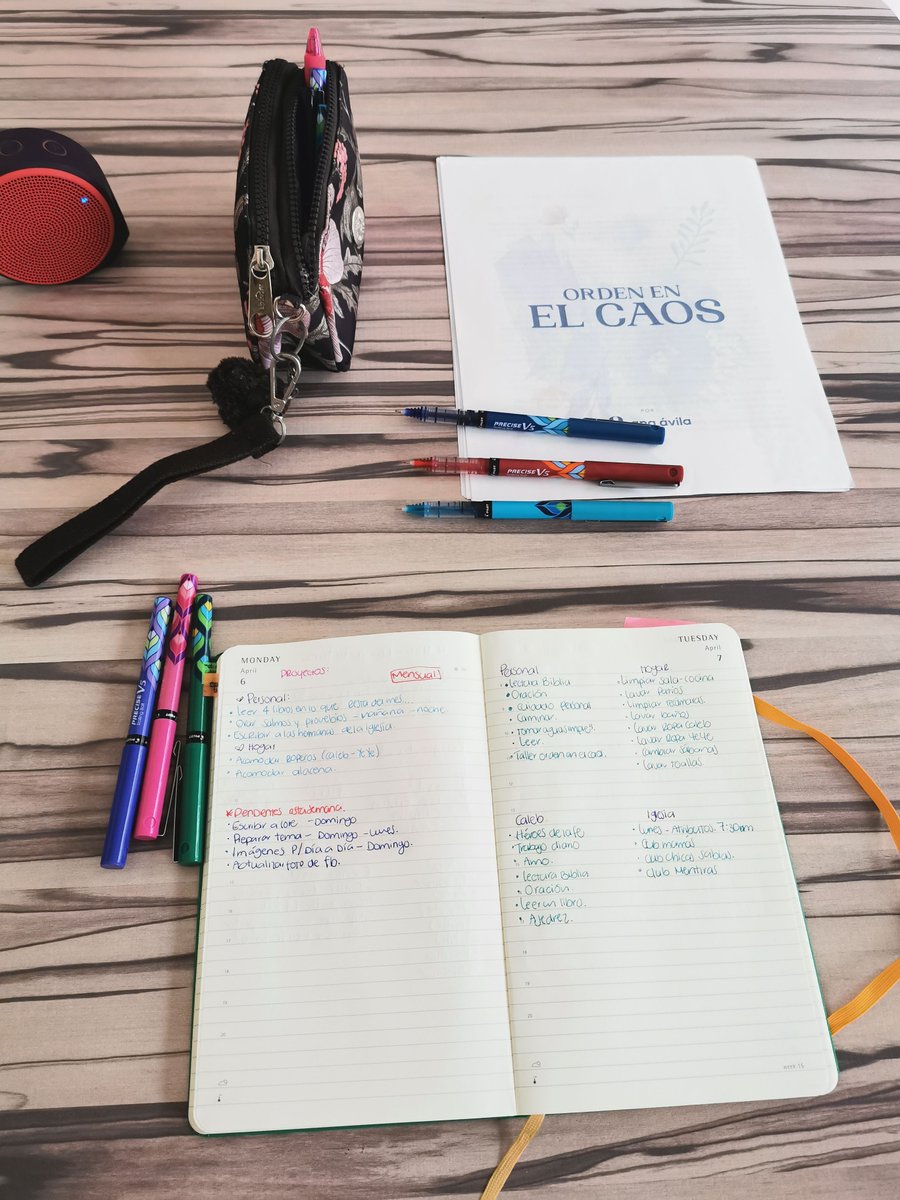 ORDEN EN
EL CAOS
POR
ana ávila
PRECISE V5
PRECISE V5
PRECISE V5
MONDAY
April
6
Proyectos:
Mensual
Personal:
Leer 4 libros en lo que resta del mes...
Orar salmos y proverbios - mañana - noche.
Escribir a las hermanas de la iglesia
Hogar
Acomodar roperos (caleb - Yeye)
Acomodar alacena.
Pendientes esta semana.
Escribir a Lore - Domingo
Preparar tema - Domingo - Lunes.
Imágenes p/ Día a Día - Domingo.
Actualizar foto de fb.
17
18
19
20
TUESDAY
April
7
Personal
Lectura Biblia
Oración
Cuidado personal
Caminar.
Tomar agua simple!
Leer.
Taller orden en el caos.
Hogar
Limpiar sala-cocina
Lavar patios
Limpiar recámaras.
Lavar baños
Lavar Ropa Caleb
Lavar Ropa Yeye
Cambiar sábanas
Lavar toallas.
Caleb
Héroes de la fe
Trabajo diario
Lectura Biblia
Oración
Leer un libro.
Ajedrez.
Iglesia
Lunes - Atributos 7:30am
Club mamás
Club chicas sabias.
Club Mentiras
19
20
week 15